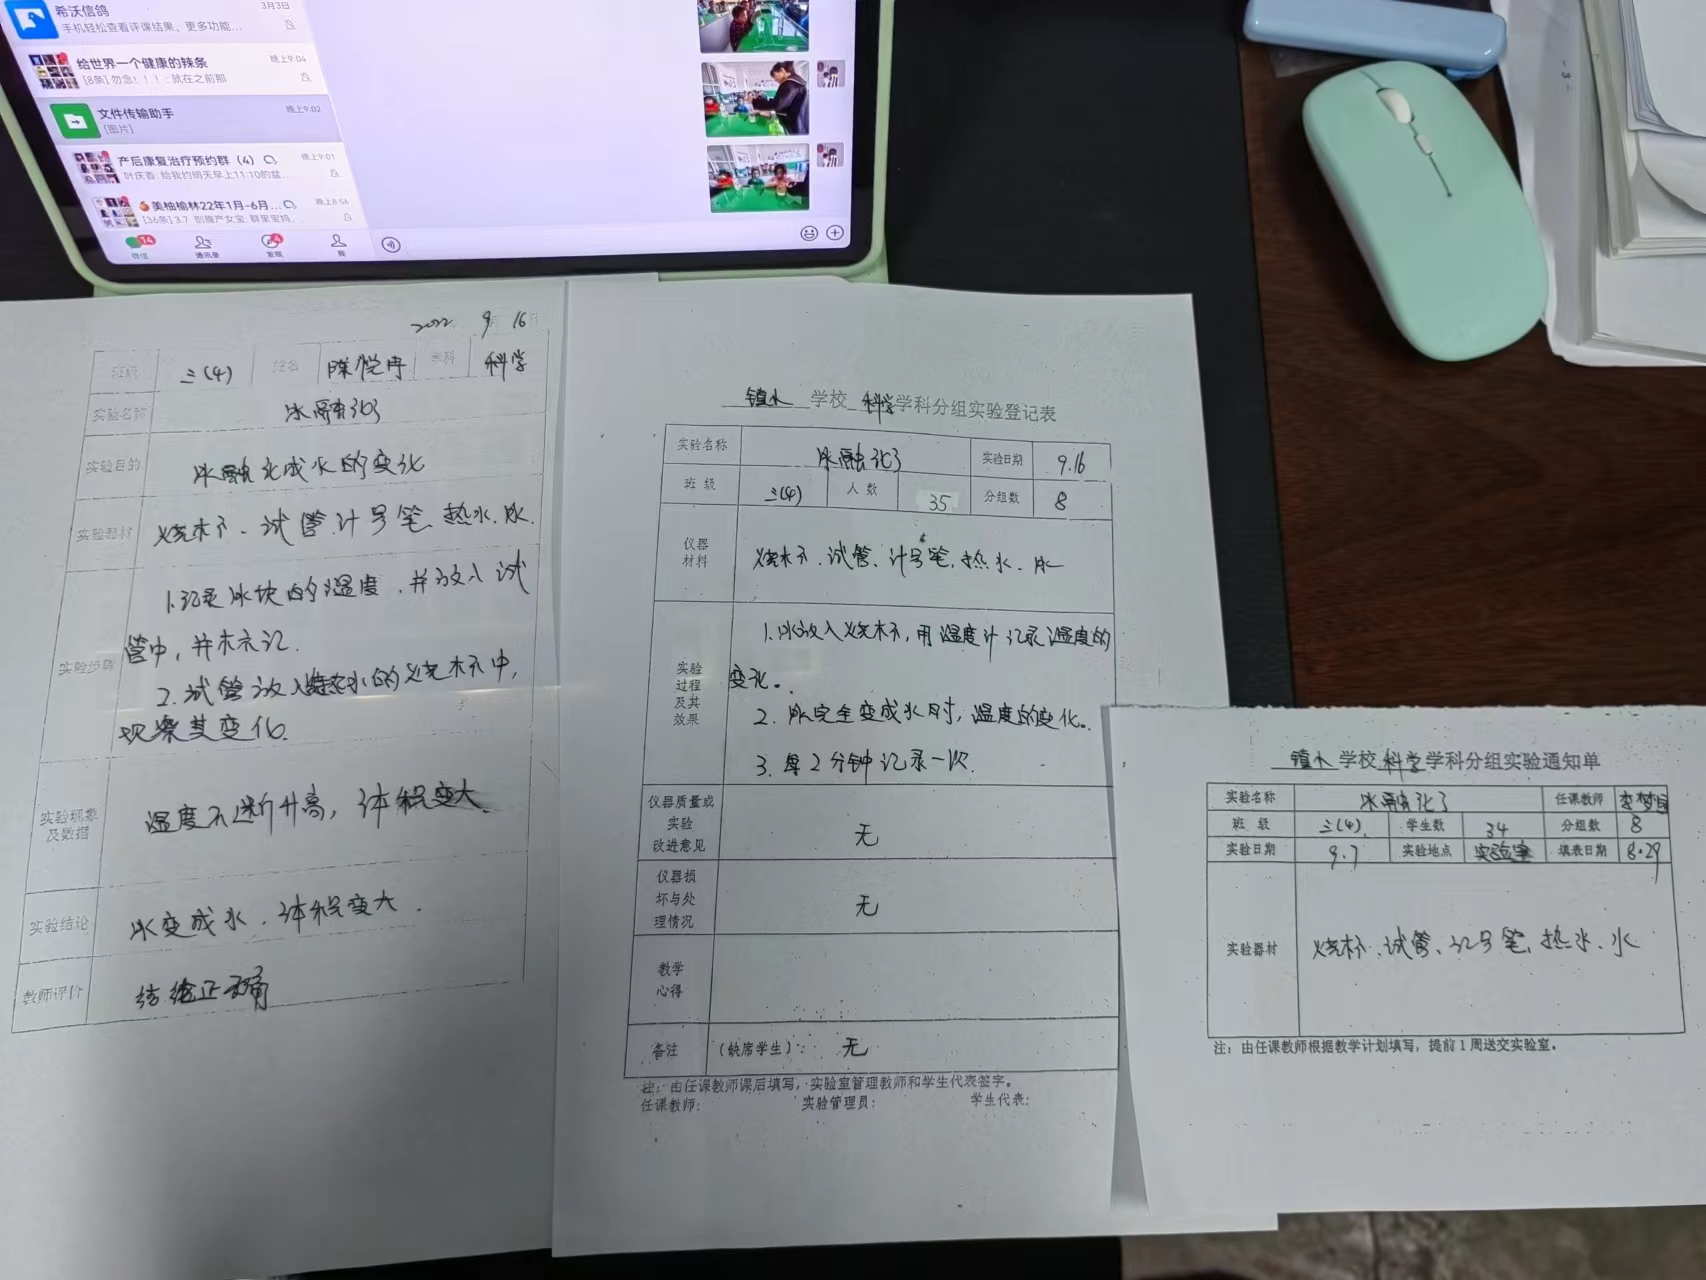 希沃信鸽
3月3日
手机轻松查看评课结果，更多功能...
给世界一个健康的辣条
晚上9:04
[8条] 勿念！！！就在之前那
文件传输助手
晚上9:02
[图片]
产后康复治疗预约群（4）
晚上9:01
叶庆香: 给我约明天早上11:10的盆...
美柚榆林22年1月-6月...
晚上8:56
[36条] 3.7 别腹产女宝: 群里宝妈，...
14
4
微信 通讯录 发现 我
2022 9 16
班级 三(4) 姓名 陈悦冉 学科 科学
实验名称 冰融化了
实验目的 冰融化成水的变化
实验器材 烧杯、试管、计号笔、热水、冰.
实验步骤
1.记录冰块的温度，并放入试
管中，并标记.
2.试管放入热水的烧杯中，
观察其变化.
实验现象及数据 温度不断升高，体积变大
实验结论 冰变成水，体积变大.
教师评价 结论正确
镇水 学校 科学 学科分组实验登记表
实验名称 冰融化了 实验日期 9.16
班 级 三(4) 人 数 35 分组数 8
仪器材料 烧杯、试管、计号笔、热水、冰
实验过程及其效果
1.冰放入烧杯，用温度计记录温度的
变化。
2. 冰完全变成水时，温度的变化。
3. 每2分钟记录一次
仪器质量或实验改进意见 无
仪器损坏与处理情况 无
教学心得
备注 （缺席学生）： 无
注：由任课教师课后填写，实验室管理教师和学生代表签字。
任课教师： 实验管理员： 学生代表：
镇水 学校 科学 学科分组实验通知单
实验名称 冰融化了 任课教师
班 级 三(4) 学生数 34 分组数 8
实验日期 9.7 实验地点 实验室 填表日期 8.29
实验器材 烧杯、试管、记号笔、热水、水
注：由任课教师根据教学计划填写，提前1周送交实验室。